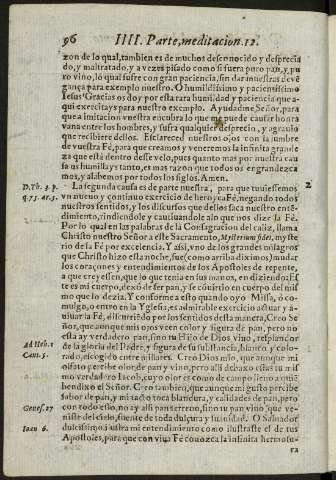 96 IIII. Parte, meditacion. 12.
zon de lo qual, tambien es de muchos desconocido y desprecia
do, y maltratado, y a vezes pisado como si fuera puro pan, y pu
ro vino, lo qual sufre con gran paciencia, sin dar muestras de vē
gança para exemplo nuestro. O humildissimo y pacientissimo
Iesus! Gracias os doy por esta rara humildad y paciencia que a-
qui exercitays para nuestro exemplo. Ayudadme Señor, para
que a imitacion vuestra encubra lo que me puede causar honra
vana entre los hombres, y sufra qualquier desprecio, y agrauio
que recibiere dellos. Esclareced nuestros ojos con la lumbre
de vuestra Fé, para que creamos y veneremos la infinita grande
za que está dentro desse velo, pues quanto mas por nuestra cau
sa os humillays tanto, es mas razon que todos os engrandezca
mos, y alabemos por todos los siglos. Amen.
D. Th. 3. p.
q. 75. ar. 5.
La segunda causa es de parte nuestra, para que tuuiessemos
2
vn nueuo y continuo exercicio de heroyca Fé, negando todos
nuestros sentidos, y los discursos que dellos saca nuestro enté-
dimiento, rindiendole y cautiuandole a lo que nos dize la Fé.
Por lo qual en las palabras de la Consagracion del caliz, llama
Christo nuestro Señor a este Sacramento, Mysterium fidei, myste
rio de la Fé por excelencia. Y assi, vno de los grandes milagros
que Christo hizo esta noche, fue (como arriba diximos) mudar
los coraçones y entendimientos de los Apostoles de repente,
a que creyessen, que lo que tenia en sus manos, en diziendo: Es
te es mi cuerpo, dexó de ser pan, y se conuirtio en cuerpo del mis
mo que lo dezia. Y conforme a esto quando oyo Missa, ò co-
mulgo, o entro en la Yglesia, es admirable exercicio actuar y a-
uiuar la Fé, discurriendo por los sentidos desta manera. Creo Se
ñor, que aunque mis ojos veen color y figura de pan, pero no
está ay verdadero pan, sino tu Hijo de Dios viuo, resplandor
Ad Heb. 1
de la gloria del Padre, y figura de su sustancia, blanco, y colo-
Cant. 5.
rado, escogido entre millares. Creo Dios mio, que aunque mi
olfato percibe olor de pan y vino, pero alli debaxo estás tu mi
smo verdadero Iacob, cuyo olor es como de campo lleno a quié
bendixo el Señor. Creo tambien, que aunque mi gusto percibe
sabor de pan, y mi tacto toca blandura, y calidades de pan, pero
Genes. 27
con todo esso, no ay alli pan terreno, sino tu pan viuo que ve-
niste del cielo, fuente de toda dulçura y suauidad. O Saluador
Ioan 6.
dulcissimo ilustra mi entendimiento como ilustraste el de tus
Apostoles, para que con viua Fé conozca la infinita hermosu-
ra